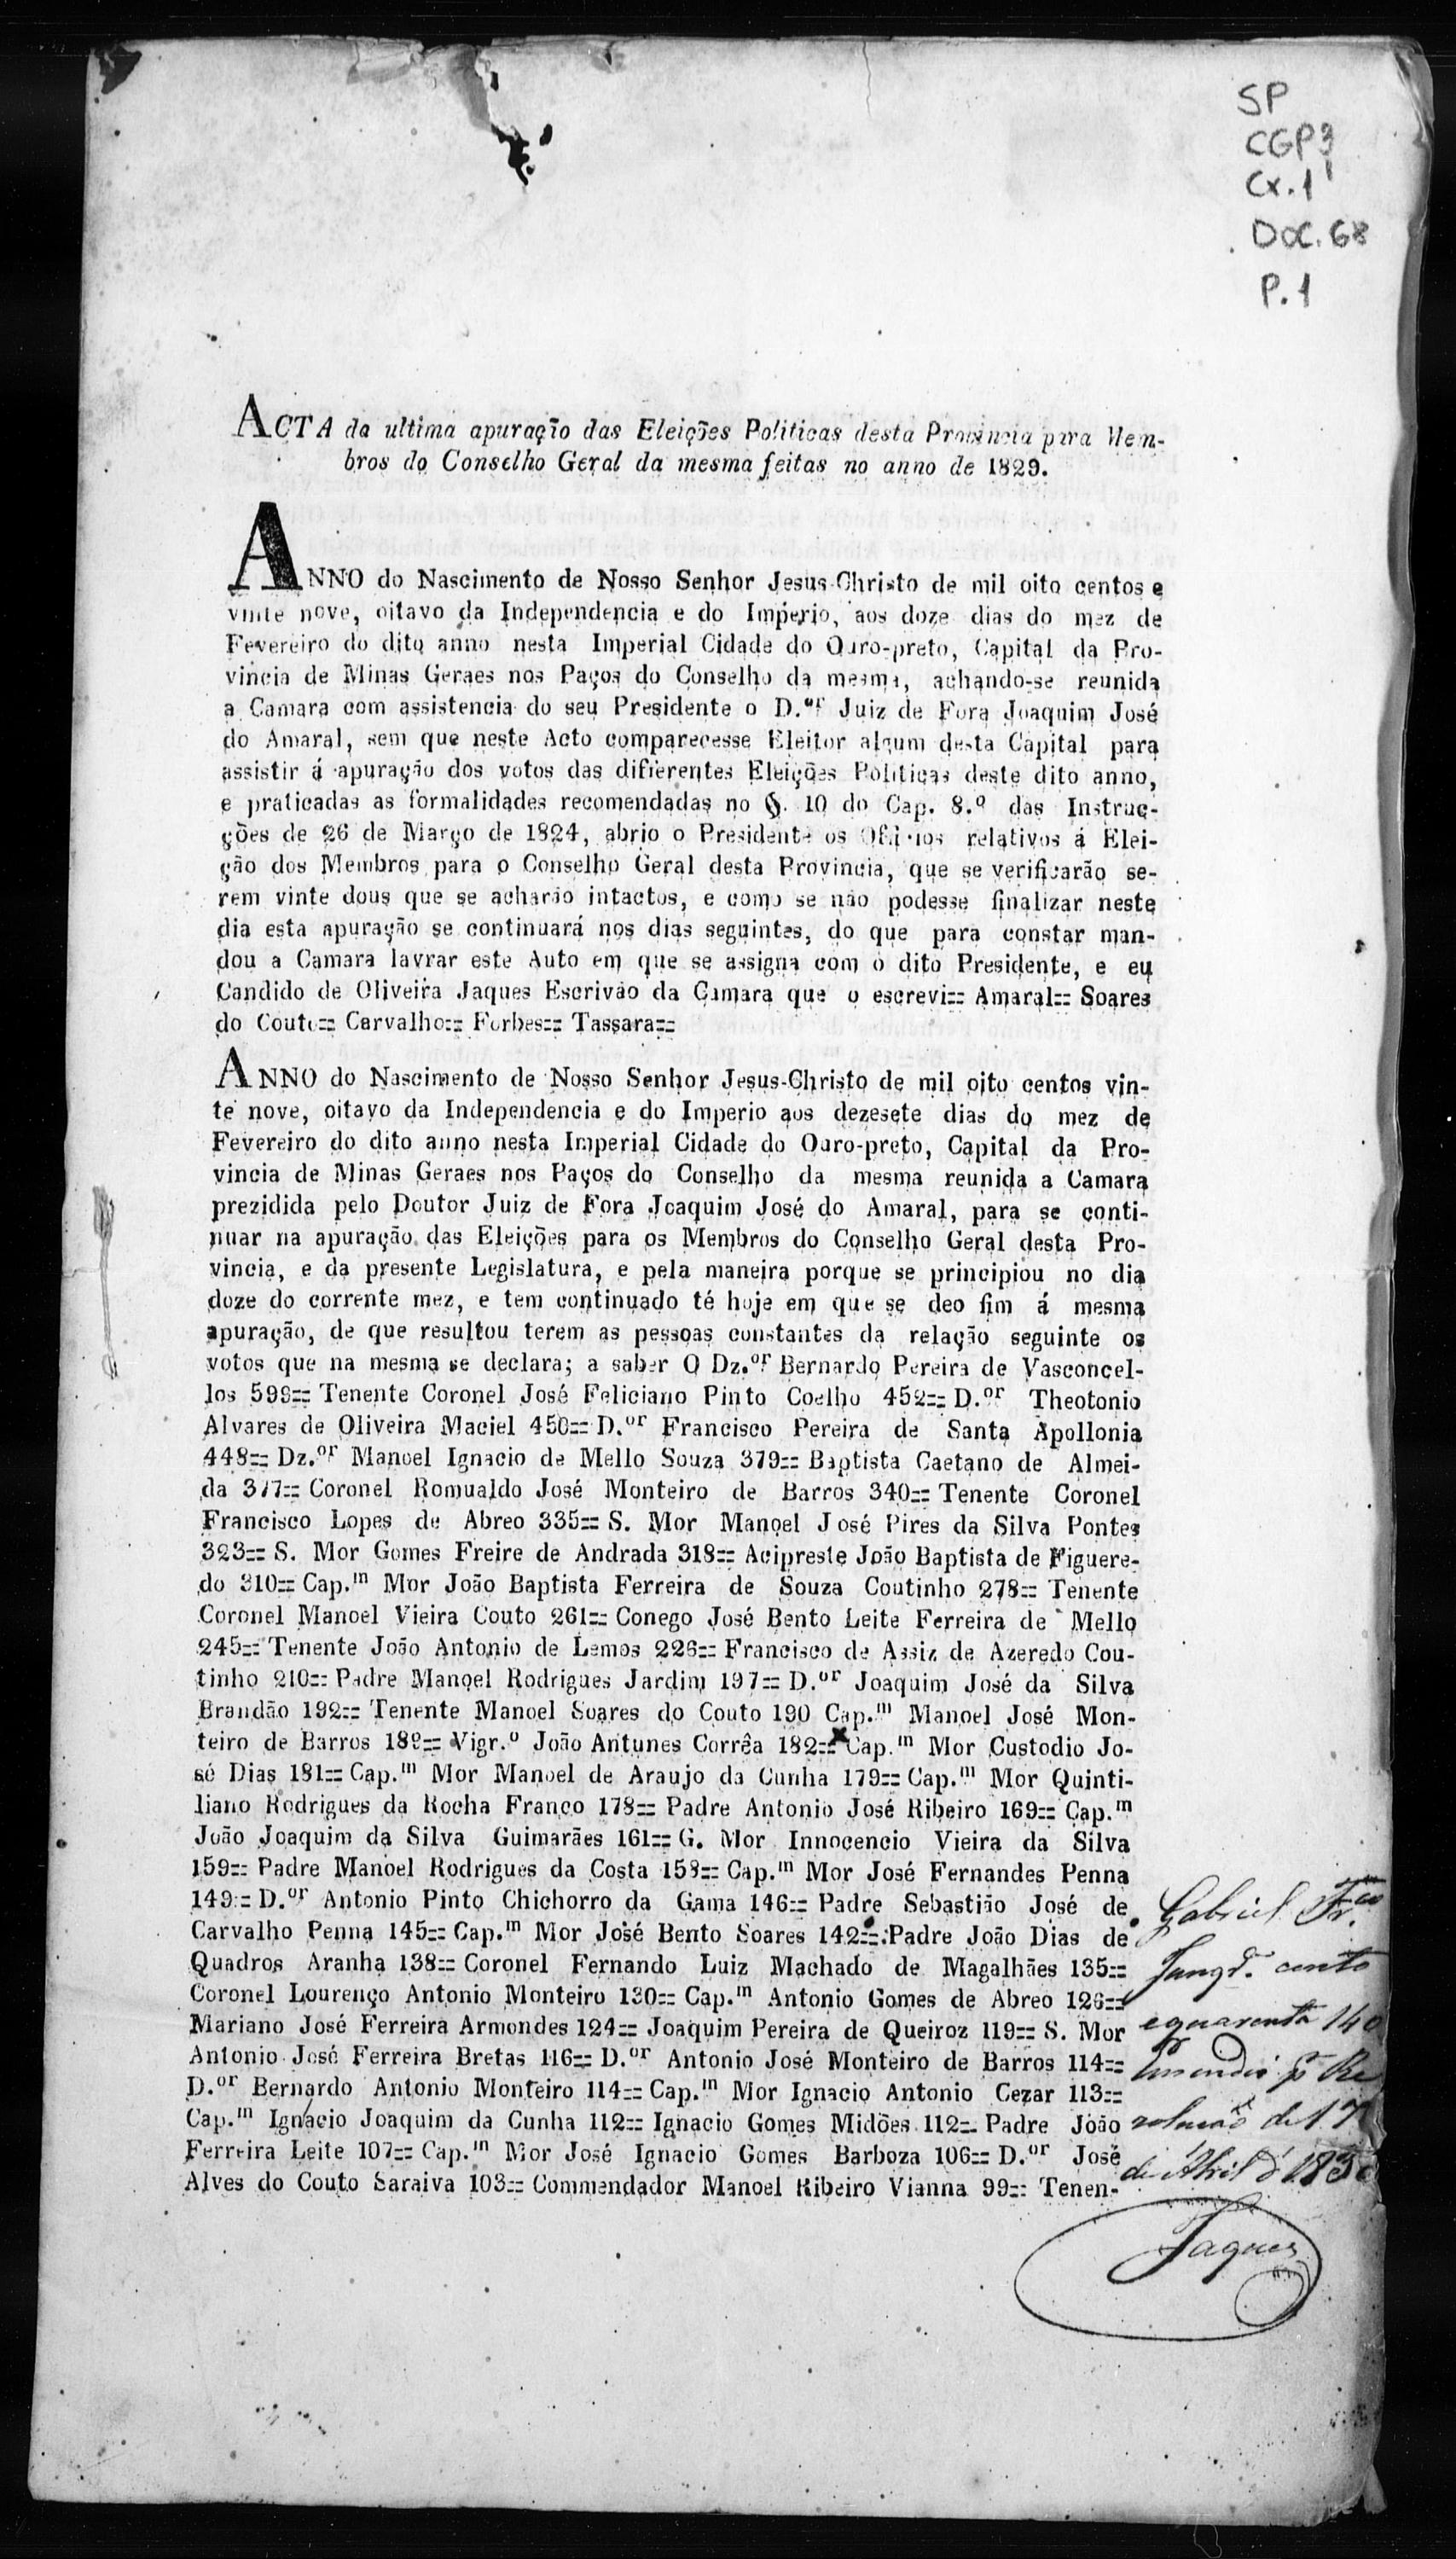 SP
CGP3
Cx.1
Doc. 68
P.1
ACTA da ultima apuração das Eleições Politicas desta Provincia para Mem-
bros do Conselho Geral da mesma feitas no anno de 1829.
ANNO do Nascimento de Nosso Senhor Jesus-Christo de mil oito centos e
vinte nove, oitavo da Independencia e do Imperio, aos doze dias do mez de
Fevereiro do dito anno nesta Imperial Cidade do Ouro-preto, Capital da Pro-
vincia de Minas Geraes nos Paços do Conselho da mesma, achando-se reunida
a Camara com assistencia do seu Presidente o D.or Juiz de Fora Joaquim José
do Amaral, sem que neste Acto comparecesse Eleitor algum desta Capital para
assistir á apuração dos votos das differentes Eleições Politicas deste dito anno,
e praticadas as formalidades recomendadas no §. 10 do Cap. 8.º das Instruc-
ções de 26 de Março de 1824, abrio o Presidente os Officios relativos á Elei-
ção dos Membros para o Conselho Geral desta Provincia, que se verificarão se-
rem vinte dous que se acharão intactos, e como se não podesse finalizar neste
dia esta apuração se continuará nos dias seguintes, do que para constar man-
dou a Camara lavrar este Auto em que se assigna com o dito Presidente, e eu
Candido de Oliveira Jaques Escrivão da Camara que o escrevi== Amaral== Soares
do Couto== Carvalho== Forbes== Tassara==
ANNO do Nascimento de Nosso Senhor Jesus-Christo de mil oito centos vin-
te nove, oitavo da Independencia e do Imperio aos dezesete dias do mez de
Fevereiro do dito anno nesta Imperial Cidade do Ouro-preto, Capital da Pro-
vincia de Minas Geraes nos Paços do Conselho da mesma reunida a Camara
prezidida pelo Doutor Juiz de Fora Joaquim José do Amaral, para se conti-
nuar na apuração das Eleições para os Membros do Conselho Geral desta Pro-
vincia, e da presente Legislatura, e pela maneira porque se principiou no dia
doze do corrente mez, e tem continuado té hoje em que se deo fim á mesma
apuração, de que resultou terem as pessoas constantes da relação seguinte os
votos que na mesma se declara; a saber O Dz.or Bernardo Pereira de Vasconcel-
los 598== Tenente Coronel José Feliciano Pinto Coelho 452== D.or Theotonio
Alvares de Oliveira Maciel 450== D.or Francisco Pereira de Santa Apollonia
448== Dz.or Manoel Ignacio de Mello Souza 379== Baptista Caetano de Almei-
da 377== Coronel Romualdo José Monteiro de Barros 340== Tenente Coronel
Francisco Lopes de Abreo 335== S. Mor Manoel José Pires da Silva Pontes
323== S. Mor Gomes Freire de Andrada 318== Acipreste João Baptista de Figuere-
do 310== Cap.m Mor João Baptista Ferreira de Souza Coutinho 278== Tenente
Coronel Manoel Vieira Couto 261== Conego José Bento Leite Ferreira de Mello
245== Tenente João Antonio de Lemos 226== Francisco de Assiz de Azeredo Cou-
tinho 210== Padre Manoel Rodrigues Jardim 197== D.or Joaquim José da Silva
Brandão 192== Tenente Manoel Soares do Couto 190 Cap.m Manoel José Mon-
teiro de Barros 189== Vigr.o João Antunes Corrêa 182== Cap.m Mor Custodio Jo-
sé Dias 181== Cap.m Mor Manoel de Araujo da Cunha 179== Cap.m Mor Quinti-
liano Rodrigues da Rocha Franco 178== Padre Antonio José Ribeiro 169== Cap.m
João Joaquim da Silva Guimarães 161== G. Mor Innocencio Vieira da Silva
159== Padre Manoel Rodrigues da Costa 158== Cap.m Mor José Fernandes Penna
149== D.or Antonio Pinto Chichorro da Gama 146== Padre Sebastião José de
Carvalho Penna 145== Cap.m Mor José Bento Soares 142== Padre João Dias de
Quadros Aranha 138== Coronel Fernando Luiz Machado de Magalhães 135==
Coronel Lourenço Antonio Monteiro 130== Cap.m Antonio Gomes de Abreo 126==
Mariano José Ferreira Armondes 124== Joaquim Pereira de Queiroz 119== S. Mor
Antonio José Ferreira Bretas 116== D.or Antonio José Monteiro de Barros 114==
D.or Bernardo Antonio Monteiro 114== Cap.m Mor Ignacio Antonio Cezar 113==
Cap.m Ignacio Joaquim da Cunha 112== Ignacio Gomes Midões 112== Padre João
Ferreira Leite 107== Cap.m Mor José Ignacio Gomes Barboza 106== D.or José
Alves do Couto Saraiva 103== Commendador Manoel Ribeiro Vianna 99== Tenen-
Gabriel Fr.co
Junqr.a cento
e quarenta 140
Emendei p.r Re
solução de 17
de Abril d' 1830
Jaques